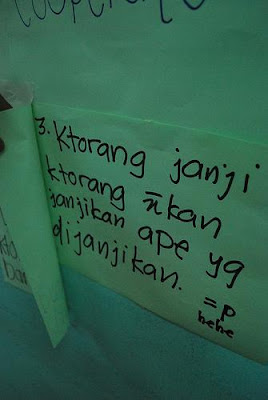 3. Ktorang janji
ktorang x̄kan
janjikan ape yg
dijanjikan.
=p
hehe